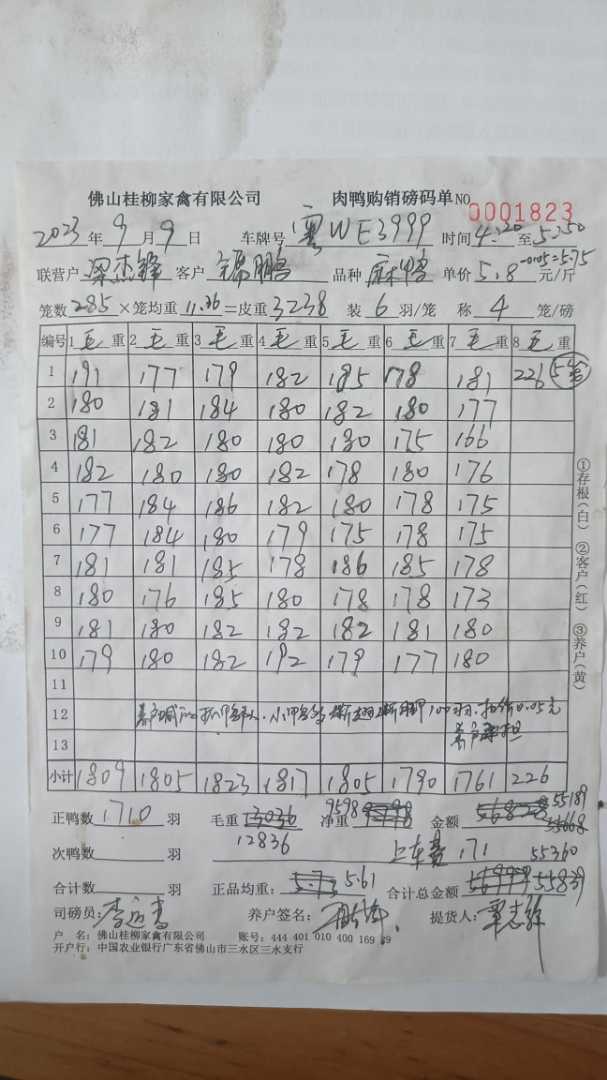 佛山桂柳家禽有限公司 肉鸭购销磅码单 NO 0001823
2023年9月9日 车牌号 粤WE3999 时间4:20至5:50
联营户 梁杰锋 客户 锦鹏 品种 麻鸭 单价 5.8-0.05=5.75 元/斤
笼数285×笼均重11.36=皮重3238 装6羽/笼 称4笼/磅
编号 1毛重 2毛重 3毛重 4毛重 5毛重 6毛重 7毛重 8毛重
1 191 177 179 182 185 178 181 226 5笼
2 180 181 184 180 182 180 177
3 181 182 180 180 180 175 166
4 182 180 180 182 178 180 176
5 177 184 186 182 180 178 175
6 177 184 180 179 175 178 175
7 181 181 185 178 186 185 178
8 180 176 185 180 178 178 173
9 181 180 182 182 182 181 180
10 179 180 182 192 179 177 180
11
12 100羽 0.05元
13
小计 1809 1805 1823 1817 1805 1790 1761 226
正鸭数1710羽 毛重13036 净重9598 金额 55189
次鸭数 羽 12836 上车费171 55360
合计数 羽 正品均重:5.61 合计总金额 55839
司磅员: 养户签名: 提货人:
户 名:佛山桂柳家禽有限公司 账号:444 401 010 400 169 89
开户行:中国农业银行广东省佛山市三水区三水支行
①存根(白) ②客户(红) ③养户(黄)